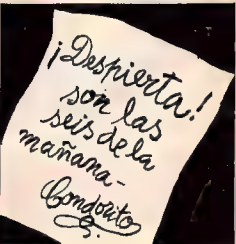 ¡Despierta!
son las
seis de la
mañana-
Condorito